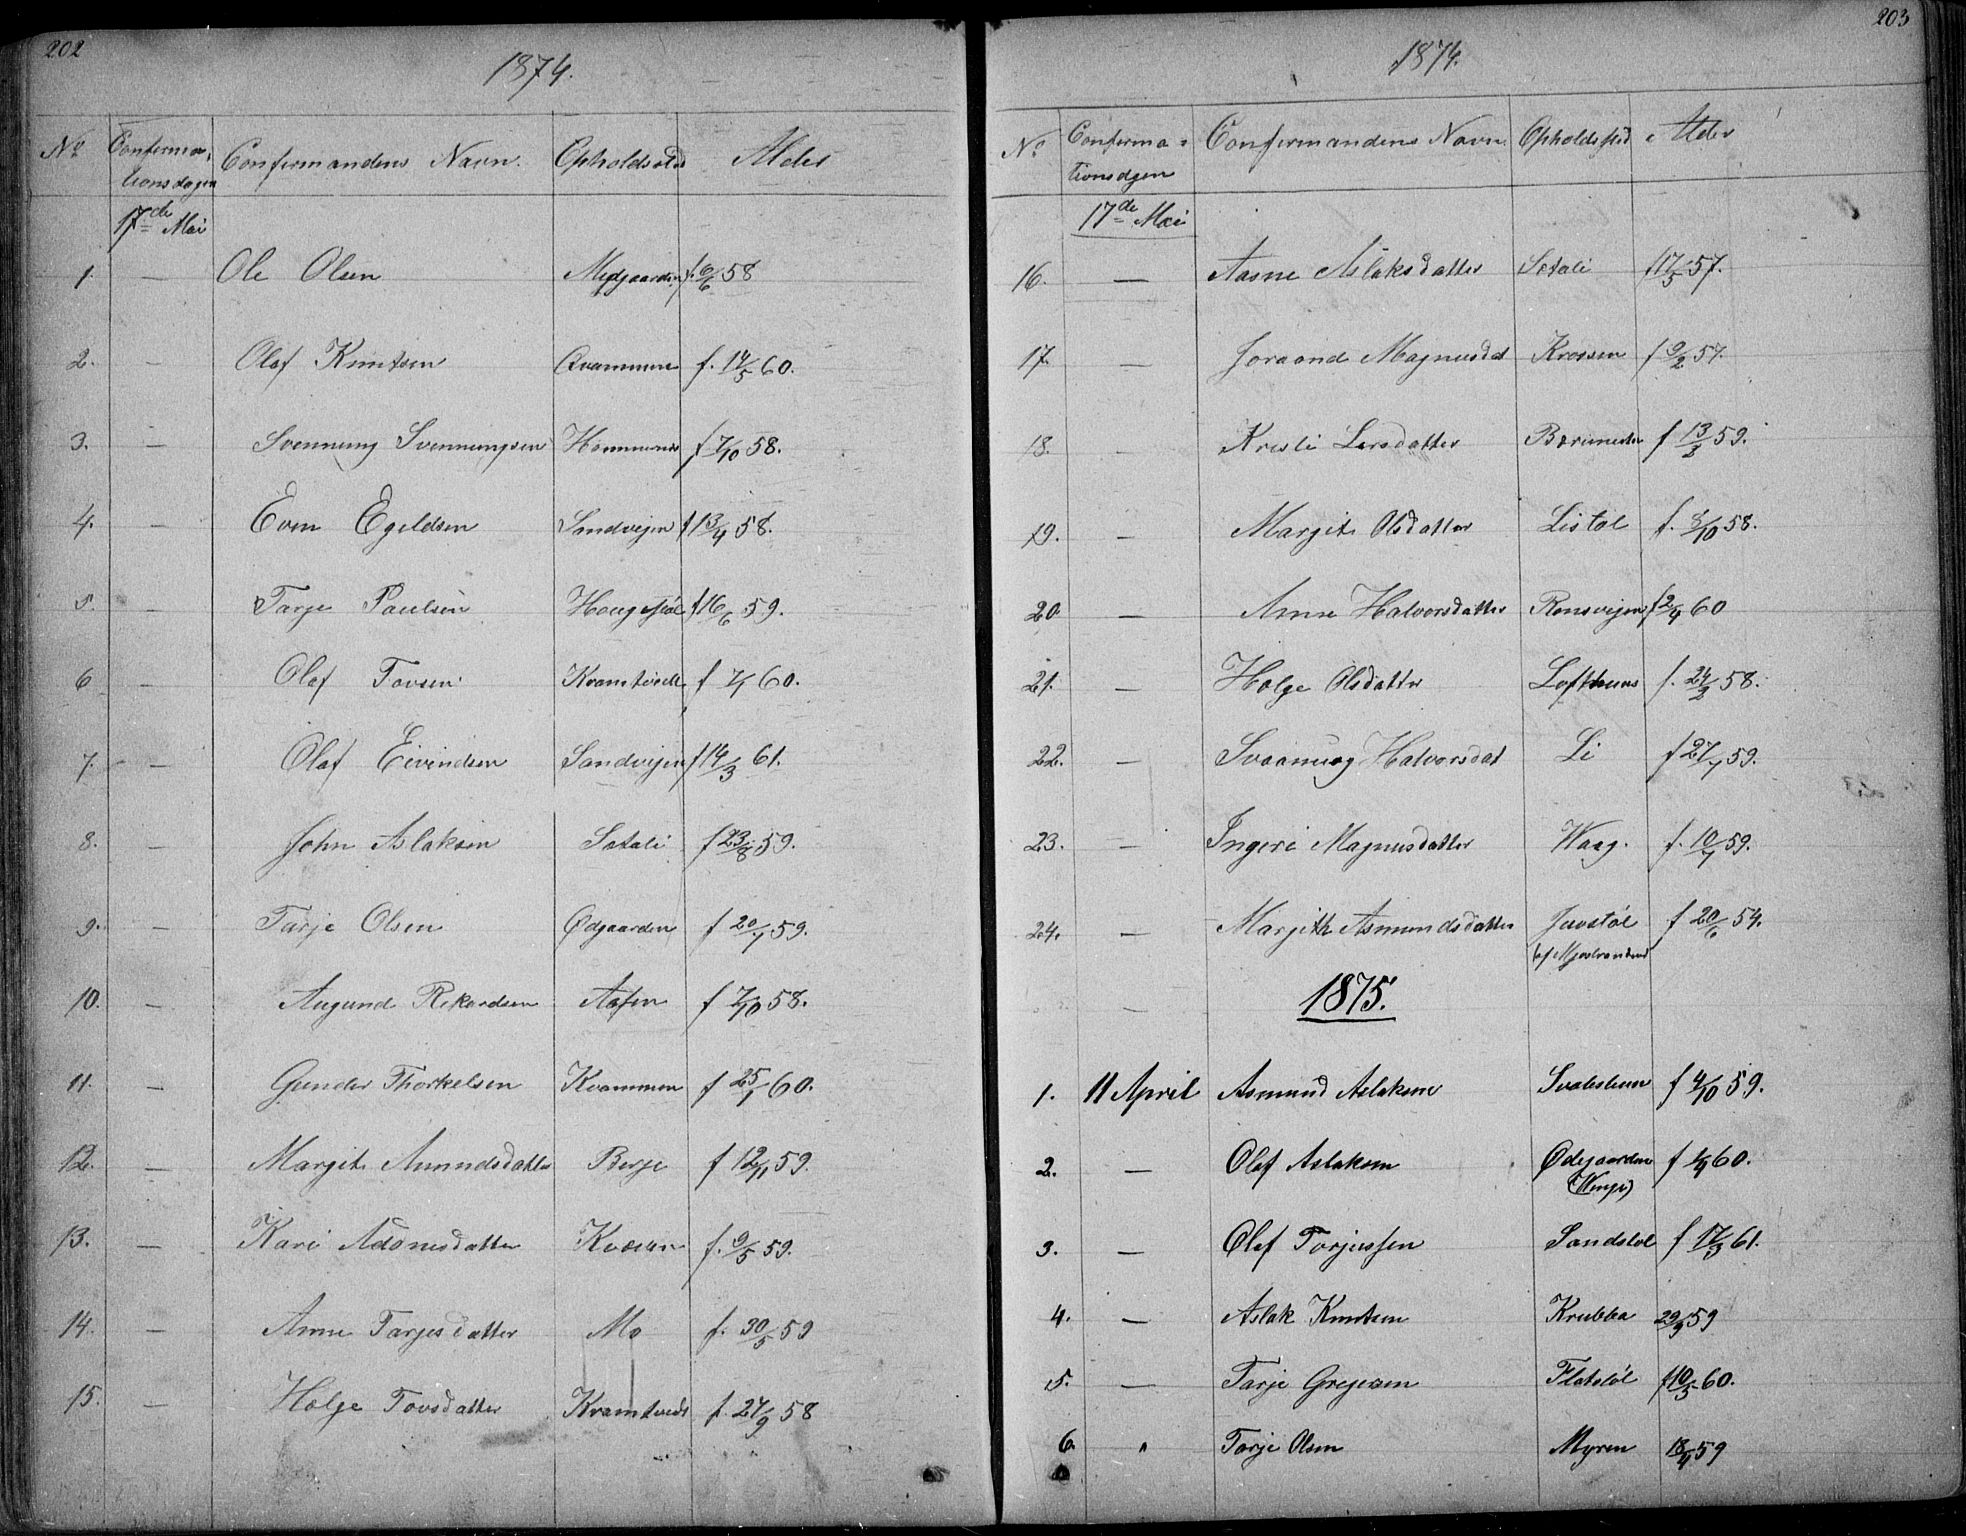 202
1874.
No Confirma- Confirmandens Navn. Opholdssted Alder
tionsdagen
17de Mai
1. — Ole Olsen Midgaarden f. 6/6 58
2. — Olaf Knutsen Qvammene f. 14/5 60.
3. — Svennung Svennungsen f 7/10 58.
4. — Even Egildsen Sandvigen f 13/4 58.
5. — Tarje Paulsen Haugestøl f 16/6 59.
6 — Olaf Tovsen Kvamtvedt f 60.
7. — Olaf Eivindsen Sandvigen f 14/3 61.
8. — John Aslaksen Setali f 23/8 59.
9. — Tarje Olsen Ødgaarden f 20/7 59.
10. — Augund Rikardsen f 7/10 58.
11. — Gunder Thorkelsen Kvammen f 25/1 60.
12. — Margit Amundsdatter Berge f 12/11 59.
13. — Kari Adonisdatter f. 9/5 59.
14. — Anne Tarjesdatter Mo f. 30/5 59
15. — Helge Tovsdatter Kvamtvedt f. 27/9 58
203
1874.
No Confirma- Confirmandens Navn Opholdssted Alder
tionsdgen
17de Mai
16. — Aasne Aslaksdatter Setali f 17/5 57.
17. — Joraand Magnusdat Krossen f 9/2 57.
18. — Kristi Larsdatter f 13/3 59.
19. — Margit Olsdatter Listøl f. 8/10 58.
20 — Anne Halvorsdatter Ronsvigen f 2/4 60
21. — Helge Olsdatter Lofthuus f. 24/2 58.
22. — Svaanung Halvorsdat Li f 27/7 59.
23. — Ingeri Magnusdatter Waag. f. 10/7 59.
24. — Margith Asmundsdatter Juvstøl f 20/6 54.
1875.
1. 11 April Asmund Aslaksen f 4/10 59.
2. — Olaf Aslaksen Ødegaarden f 1/4 60.
3. — Olaf Torjussen Sandstøl f 17/3 61.
4. — Aslak Knutsen Krubba 29/9 59
5. — Tarje Gregersen Flatstøl f 10/5 60.
6. " Tarje Olsen Myren 18/4 59